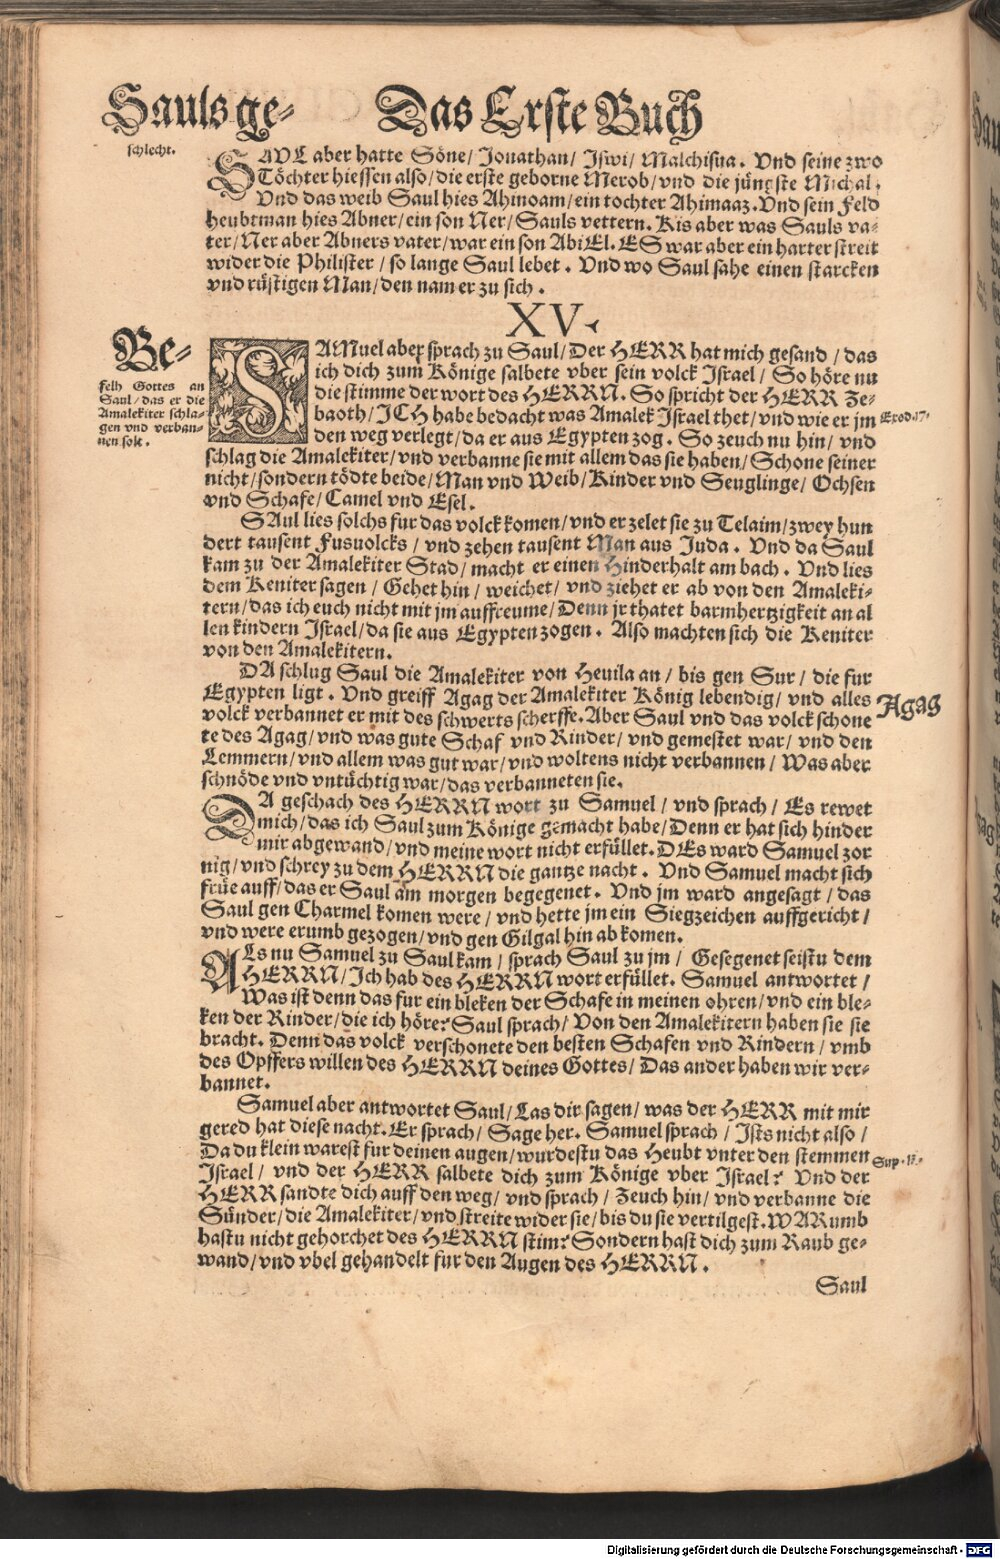 Sauls ge- Das Erste Buch
schlecht.
SAVL aber hatte Söne/ Jonathan/ Iswi/ Malchisua. Vnd seine zwo
Töchter hiessen also/ die erste geborne Merob/ vnd die jüngste Michal.
Vnd das weib Saul hies Ahinoam/ ein tochter Ahimaaz. Vnd sein Feld
heubtman hies Abner/ ein son Ner/ Sauls vettern. Kis aber was Sauls va-
ter/ Ner aber Abners vater/ war ein son AbiEl. ES war aber ein harter streit
wider die Philister/ so lange Saul lebet. Vnd wo Saul sahe einen starcken
vnd rüstigen Man/ den nam er zu sich.
XV.
Be-
felh Gottes an
Saul/ das er die
Amalekiter schla-
gen vnd verban-
nen solt.
SAMuel aber sprach zu Saul/ Der HERR hat mich gesand/ das
ich dich zum Könige salbete vber sein volck Israel/ So höre nu
die stimme der wort des HERRN. So spricht der HERR Ze-
baoth/ ICH habe bedacht was Amalek Israel thet/ vnd wie er jm
Exod. 17.
den weg verlegt/ da er aus Egypten zog. So zeuch nu hin/ vnd
schlag die Amalekiter/ vnd verbanne sie mit allem das sie haben/ Schone seiner
nicht/ sondern tödte beide/ Man vnd Weib/ Kinder vnd Seuglinge/ Ochsen
vnd Schafe/ Camel vnd Esel.
SAul lies solchs fur das volck komen/ vnd er zelet sie zu Telaim/ zwey hun
dert tausent Fusuolcks/ vnd zehen tausent Man aus Juda. Vnd da Saul
kam zu der Amalekiter Stad/ macht er einen Hinderhalt am bach. Vnd lies
dem Keniter sagen/ Gehet hin/ weichet/ vnd ziehet er ab von den Amaleki-
tern/ das ich euch nicht mit jm auffreume/ Denn jr thatet barmhertzigkeit an al
len kindern Israel/ da sie aus Egypten zogen. Also machten sich die Keniter
von den Amalekitern.
DA schlug Saul die Amalekiter von Heuila an/ bis gen Sur/ die fur
Egypten ligt. Vnd greiff Agag der Amalekiter König lebendig/ vnd alles
Agag
volck verbannet er mit des schwerts scherffe. Aber Saul vnd das volck schone
te des Agag/ vnd was gute Schaf vnd Rinder/ vnd gemestet war/ vnd den
Lemmern/ vnd allem was gut war/ vnd woltens nicht verbannen/ Was aber
schnöde vnd vntüchtig war/ das verbanneten sie.
DA geschach des HERRN wort zu Samuel/ vnd sprach/ Es rewet
mich/ das ich Saul zum Könige gemacht habe/ Denn er hat sich hinder
mir abgewand/ vnd meine wort nicht erfüllet. DEs ward Samuel zor
nig/ vnd schrey zu dem HERRN die gantze nacht. Vnd Samuel macht sich
früe auff/ das er Saul am morgen begegenet. Vnd jm ward angesagt/ das
Saul gen Charmel komen were/ vnd hette jm ein Siegzeichen auffgericht/
vnd were erumb gezogen/ vnd gen Gilgal hin ab komen.
ALs nu Samuel zu Saul kam/ sprach Saul zu jm/ Gesegenet seistu dem
HERRN/ Ich hab des HERRN wort erfüllet. Samuel antwortet/
Was ist denn das fur ein bleken der Schafe in meinen ohren/ vnd ein ble-
ken der Rinder/ die ich höre? Saul sprach/ Von den Amalekitern haben sie sie
bracht. Denn das volck verschonete den besten Schafen vnd Rindern/ vmb
des Opffers willen des HERRN deines Gottes/ Das ander haben wir ver-
bannet.
Samuel aber antwortet Saul/ Las dir sagen/ was der HERR mit mir
gered hat diese nacht. Er sprach/ Sage her. Samuel sprach/ Ists nicht also/
Da du klein warest fur deinen augen/ wurdestu das Heubt vnter den stemmen
Israel/ vnd der HERR salbete dich zum Könige vber Israel? Vnd der
HERR sandte dich auff den weg/ vnd sprach/ Zeuch hin/ vnd verbanne die
Sünder/ die Amalekiter/ vnd streite wider sie/ bis du sie vertilgest. WARumb
hastu nicht gehorchet des HERRN stim? Sondern hast dich zum Raub ge-
wand/ vnd vbel gehandelt fur den Augen des HERRN.
Saul
Digitalisierung gefördert durch die Deutsche Forschungsgemeinschaft - DFG